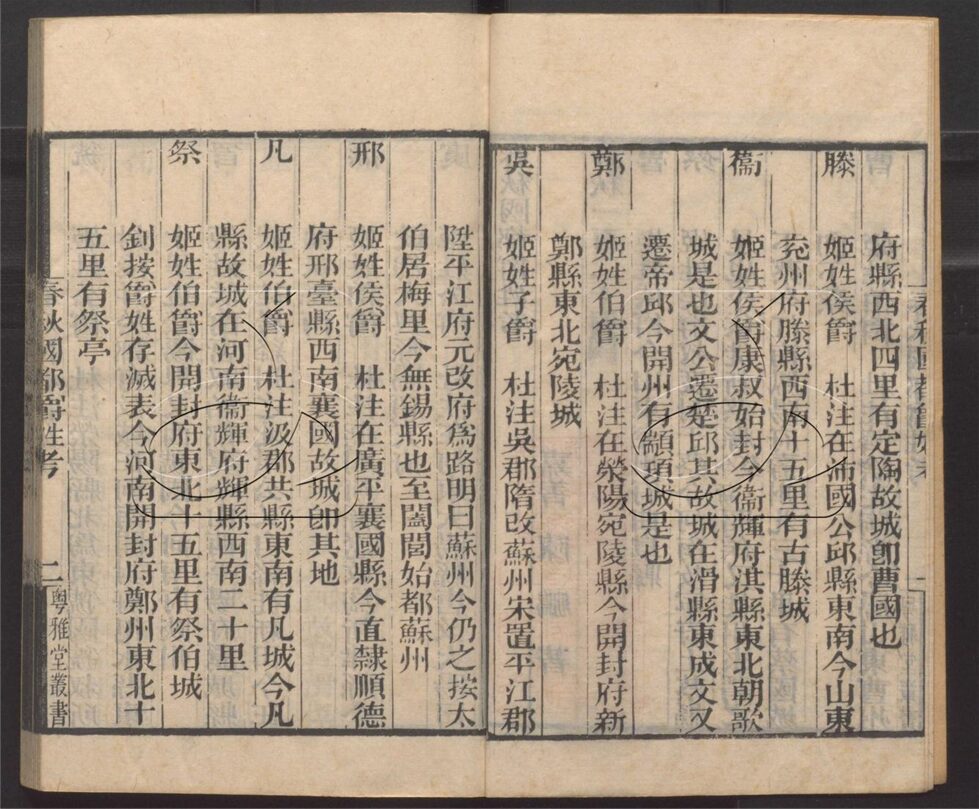 春秋國都爵姓考 一
府縣西北四里有定陶故城卽曹國也
滕
姬姓侯爵 杜注在沛國公邱縣東南今山東
兖州府滕縣西南十五里有古滕城
衞
姬姓侯爵康叔始封今衞輝府淇縣東北朝歌
城是也文公遷楚邱其故城在滑縣東成文又
遷帝邱今開州有顓頊城是也
鄭
姬姓伯爵 杜注在滎陽宛陵縣今開封府新
鄭縣東北宛陵城
吳
姬姓子爵 杜注吳郡隋改蘇州宋置平江郡
陞平江府元改府爲路明曰蘇州今仍之按太
伯居梅里今無錫縣也至闔閭始都蘇州
邢
姬姓侯爵 杜注在廣平襄國縣今直隸順德
府邢臺縣西南襄國故城卽其地
凡
姬姓伯爵 杜注汲郡共縣東南有凡城今凡
縣故城在河南衞輝府輝縣西南二十里
祭
姬姓伯爵今開封府東北十五里有祭伯城
釗按爵姓存滅表今河南開封府鄭州東北十
五里有祭亭
春秋國都爵姓考 二 粤雅堂叢書